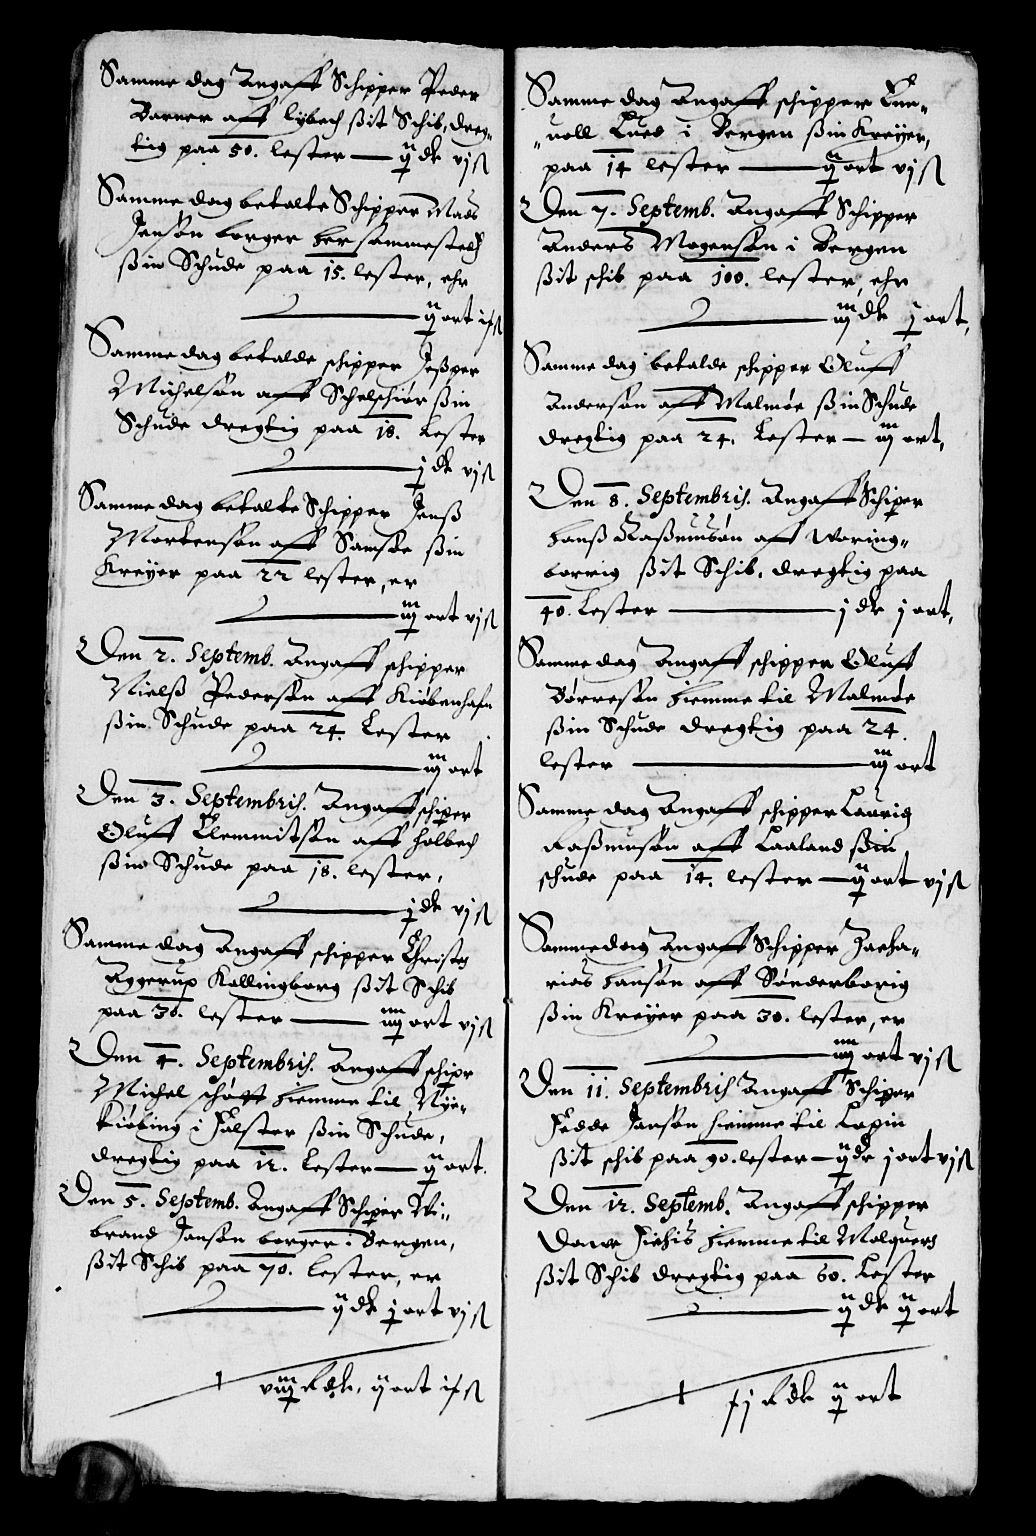 Samme dag Angaff Schipper Peder
Barner aff Lybech ßit Schib, dreg-
tig paa 50. lester — ij dr vj ß
Samme dag betalte Schipper Mads
Jensøn borger her sammestedß
ßin Schude paa 15. lester, ehr
ij ort
Samme dag betalde schipper Jesper
Michelsøn aff Schelschiør ßin
Schude dregtig paa 18. Lester
j dr vj ß
Samme dag betalte Schipper Jenß
Mortensøn aff Samsøe ßin
Kreyer paa 22 lester, er
iij ort vj ß
Den 2. Septemb. Angaff schipper
Nielß Pedersøn aff Kiøbenhafn
ßin Schude paa 24. Lester
iij ort
Den 3. Septembris. Angaff schiper
Oluff Clemmitsøn aff Holbech
ßin Schude paa 18. lester,
j dr vj ß
Samme dag Angaff schipper Christe
Aggerup Kallingborg ßit Schib
paa 30. lester — iiij ort vj ß
Den 4. Septembris. Angaff schipr
Michel hiemme til Nye-
kiøbing i Falster ßin Schude,
dregtig paa 12. Lester — ij ort.
Den 5. Septemb. Angaff Schiper Wi-
brand Jansøn borger i Bergen,
ßit Schib paa 70. lester, er
ij dr j ort vj ß
viij Rdr. ij ort
Samme dag Angaff schipper
i Bergen ßin Kreyer,
paa 14 lester — ij ort vj ß
Den 7. Septemb. Angaff Schipper
Anders Mogensøn i Bergen
ßit schib paa 100. lester, ehr
iij dr j ort,
Samme dag betalde schipper Oluff
Andersøn aff Malmøe ßin Schude
dregtig paa 24. Lester — iij ort,
Den 8. Septembris. Angaff Schiper
Hanß Raßmusøn aff Waring-
borrig ßit Schib, dregtig paa
40. Lester — j dr j ort,
Samme dag Angaff schipper Oluff
Børresøn hiemme til Malmøe
ßin Schude dregtig paa 24.
lester — iij ort
Samme dag Angaff schipper Lauriß
Raßmusøn aff Laaland ßin
schude paa 14. lester — ij ort vj ß
Samme dag Angaff Schipper Zacha-
rias Hansøn aff Sønderborig
ßin Kreyer paa 30. lester, er
iiij ort vj ß
Den 11. Septembris Angaff Schiper
Fedde Jansøn hiemme til
ßit schib paa 90. lester — ij dr j ort vj ß
Den 12. Septemb. Angaff schipper
hiemme til
ßit Schib dregtig paa 60. Lester
ij dr ij ort
Rdr ij ort